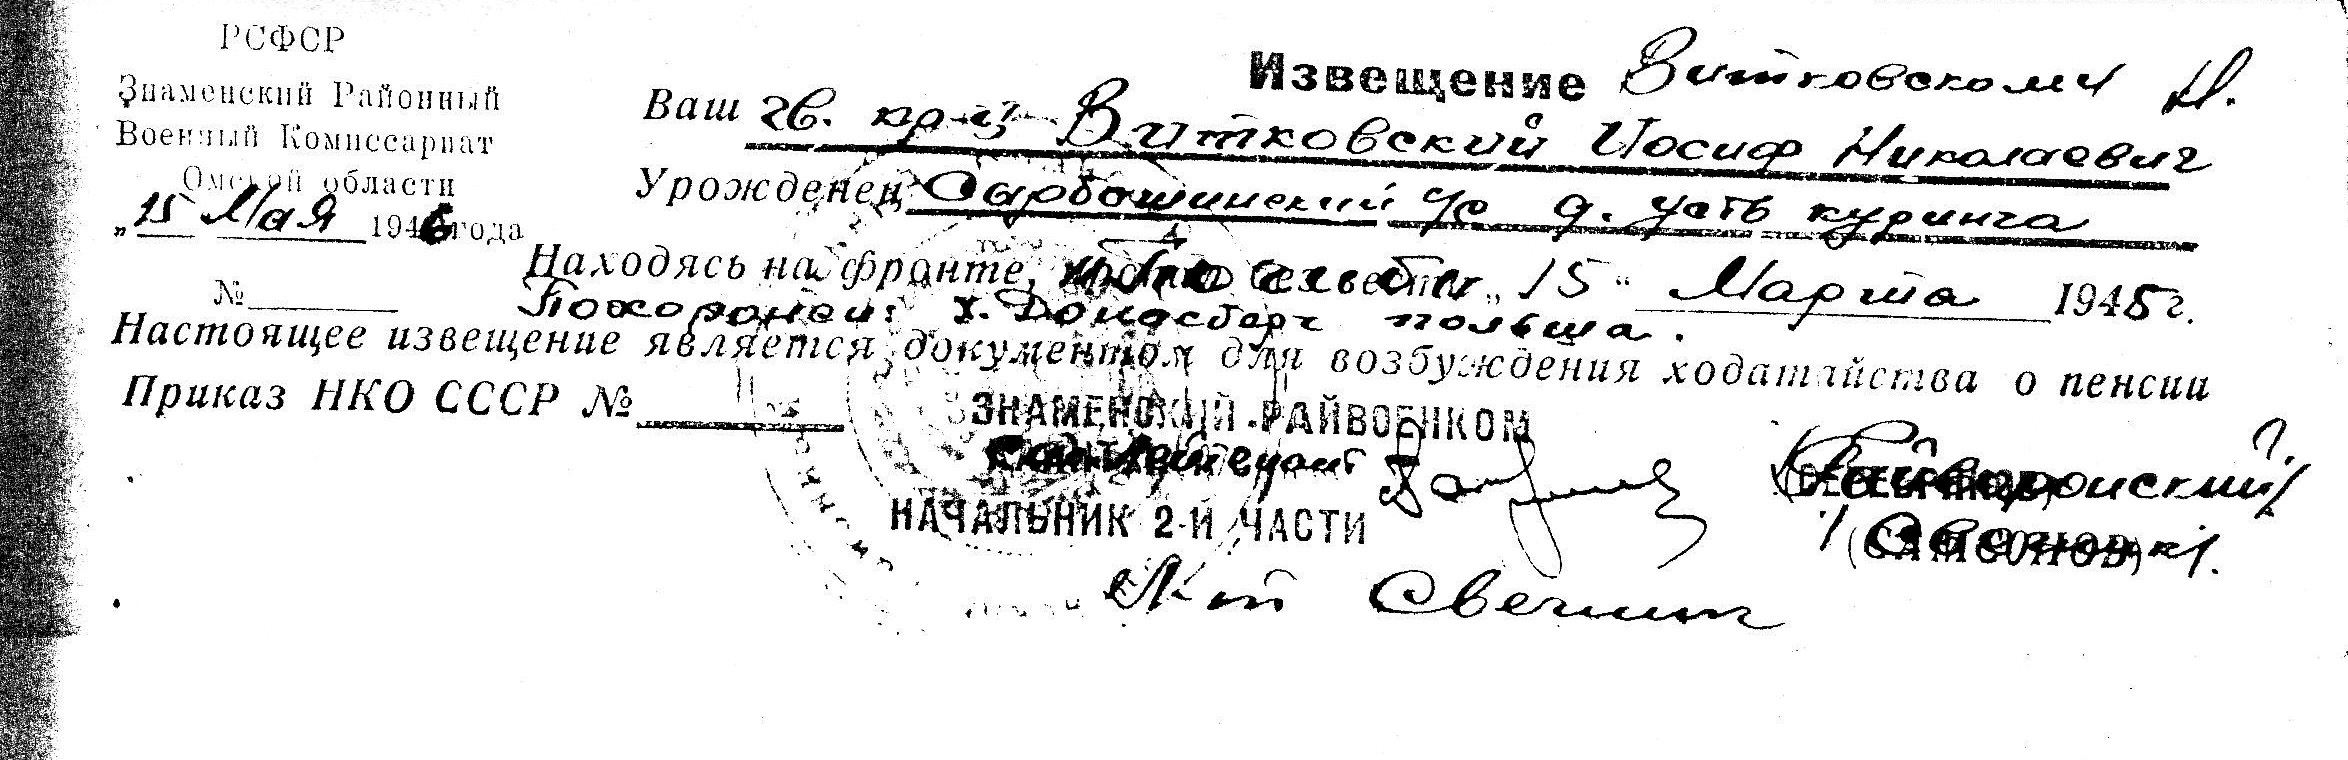 РСФСР
Знаменский Районный
Военный Комиссариат
Омской области
„15 Мая 1946 года
№
Извещение Витковскому Н.
Ваш гв. кр-ц Витковский Иосиф Николаевич
Урожденец с/с д. Усть куринга
Находясь на фронте, „15“ Марта 1945 г.
Похоронен: х. Донасберг польша.
Настоящее извещение является документом для возбуждения ходатайства о пенсии
Приказ НКО СССР №
ЗНАМЕНСКИЙ РАЙВОЕНКОМ
Лейтенант
НАЧАЛЬНИК 2-Й ЧАСТИ
(САМСОНОВ)